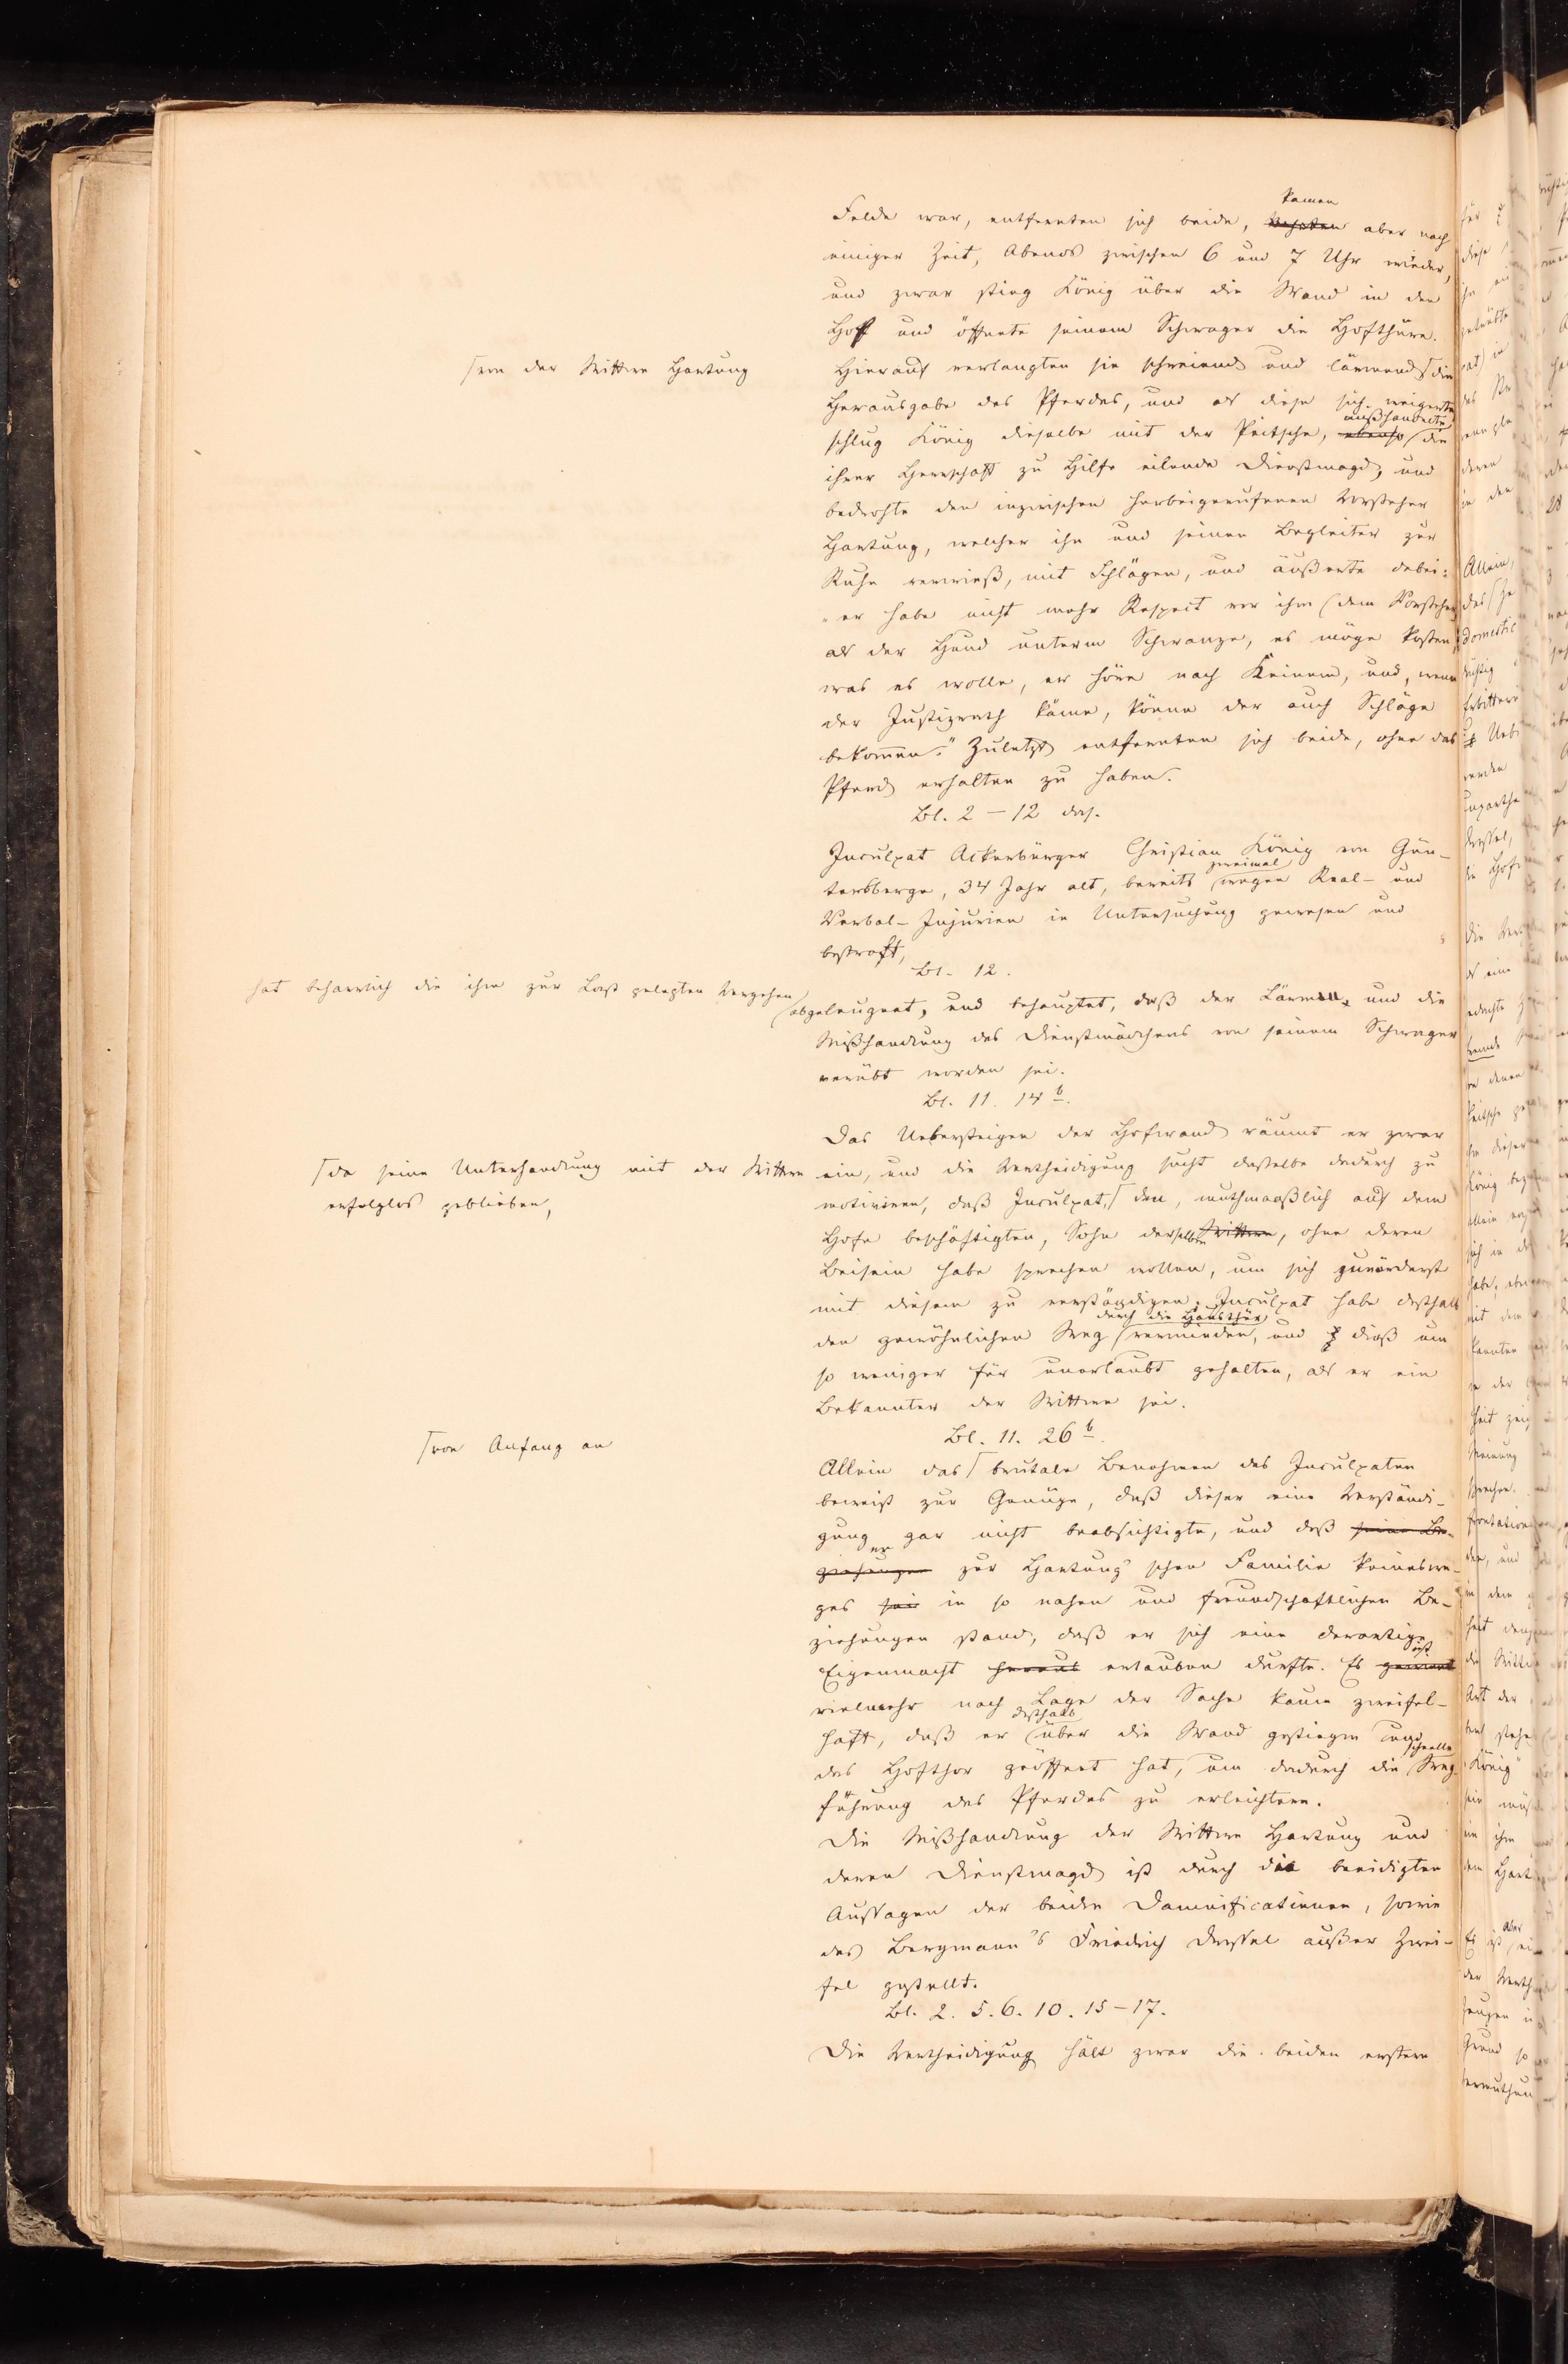 kamen
Felde war, entfernten sich beide, kehrten aber nach
einiger Zeit, Abends zwischen 6 und 7 Uhr wieder,
und zwar stieg König über die Wand in den
Hof und öffnete seinem Schwager die Hofthüre.
⌈von der Wittwe Hartung
Hierauf verlangten sie schreiend und lärmend⌈die
Herausgabe des Pferdes, und als diese sich weigerte
mißhandelte
schlug König dieselbe mit der Peitsche, ebenso die
ihrer Herrschaft zu Hilfe eilende Dienstmagd, und
bedrohte den inzwischen herbeigerufenen Vorsteher
Hartung, welcher ihn und seinen Begleiter zur
Ruhe verwieß, mit Schlägen, und äußerte dabei:
"er habe nicht mehr Respect vor ihm (dem Vorsteher)
als der Hund unterm Schwanze, es möge kosten,
was es wolle, er höre nach Keinem, und, wenn
der Justizrath käme, könne der auch Schläge
bekommen." Zuletzt entfernten sich beide, ohne das
Pferd erhalten zu haben.
Bl. 2 – 12 das.
Inculpat Ackerbürger Christian König von Gün-
zweimal
tersberge, 34 Jahr alt, bereits wegen Real- und
Verbal-Injurien in Untersuchung gewesen und
bestraft,
Bl. 12.
hat beharrlich die ihm zur Last gelegten Vergehen
abgeleugnet, und behauptet, daß der Lärmen, und die
Mißhandlung des Dienstmädchens von seinem Schwager
verübt worden sei.
Bl. 11. 14 b.
Das Uebersteigen der Hofwand räumt er zwar
⌈da seine Unterhandlung mit der Wittwe
ein, und die Vertheidigung sucht dasselbe dadurch zu
erfolglos geblieben,
motiviren, daß Inculpat,⌈ den, muthmaaßlich auf dem
Hofe beschäftigten, Sohn derselben Wittwe, ohne deren
Beisein habe sprechen wollen, um sich zuvörderst
mit diesem zu verständigen; Inculpat habe deshalb
durch die Hausthür
den gewöhnlichen Weg vermieden, und dieß um
so weniger für unerlaubt gehalten, als er ein
Bekannter der Wittwe sei.
Bl. 11. 26 b.
⌈von Anfang an
Allein das⌈ brutale Benehmen des Inculpaten
beweist zur Genüge, daß dieser eine Verständi-
gung gar nicht beabsichtigte, und daß seine Be-
er
ziehungen zur Hartung'schen Familie keineswe-
ges sei in so nahen und freundschaftlichen Be-
ziehungen stand, daß er sich eine derartige
ist
Eigenmacht heraus erlauben durfte. Es gewinnt
vielmehr nach Lage der Sache kaum zweifel-
deshalb
haft, daß er über die Wand gestiegen und
schnelle
das Hofthor geöffnet hat, um dadurch die Weg-
führung des Pferdes zu erleichtern.
Die Mißhandlung der Wittwe Hartung und
deren Dienstmagd ist durch die beeidigten
Aussagen der beiden Damnificatinnen, sowie
des Bergmann's Friedrich Dressel außer Zwei-
fel gestellt.
Bl. 2. 5. 6. 10. 15–17.
Die Vertheidigung hält zwar die beiden erstern